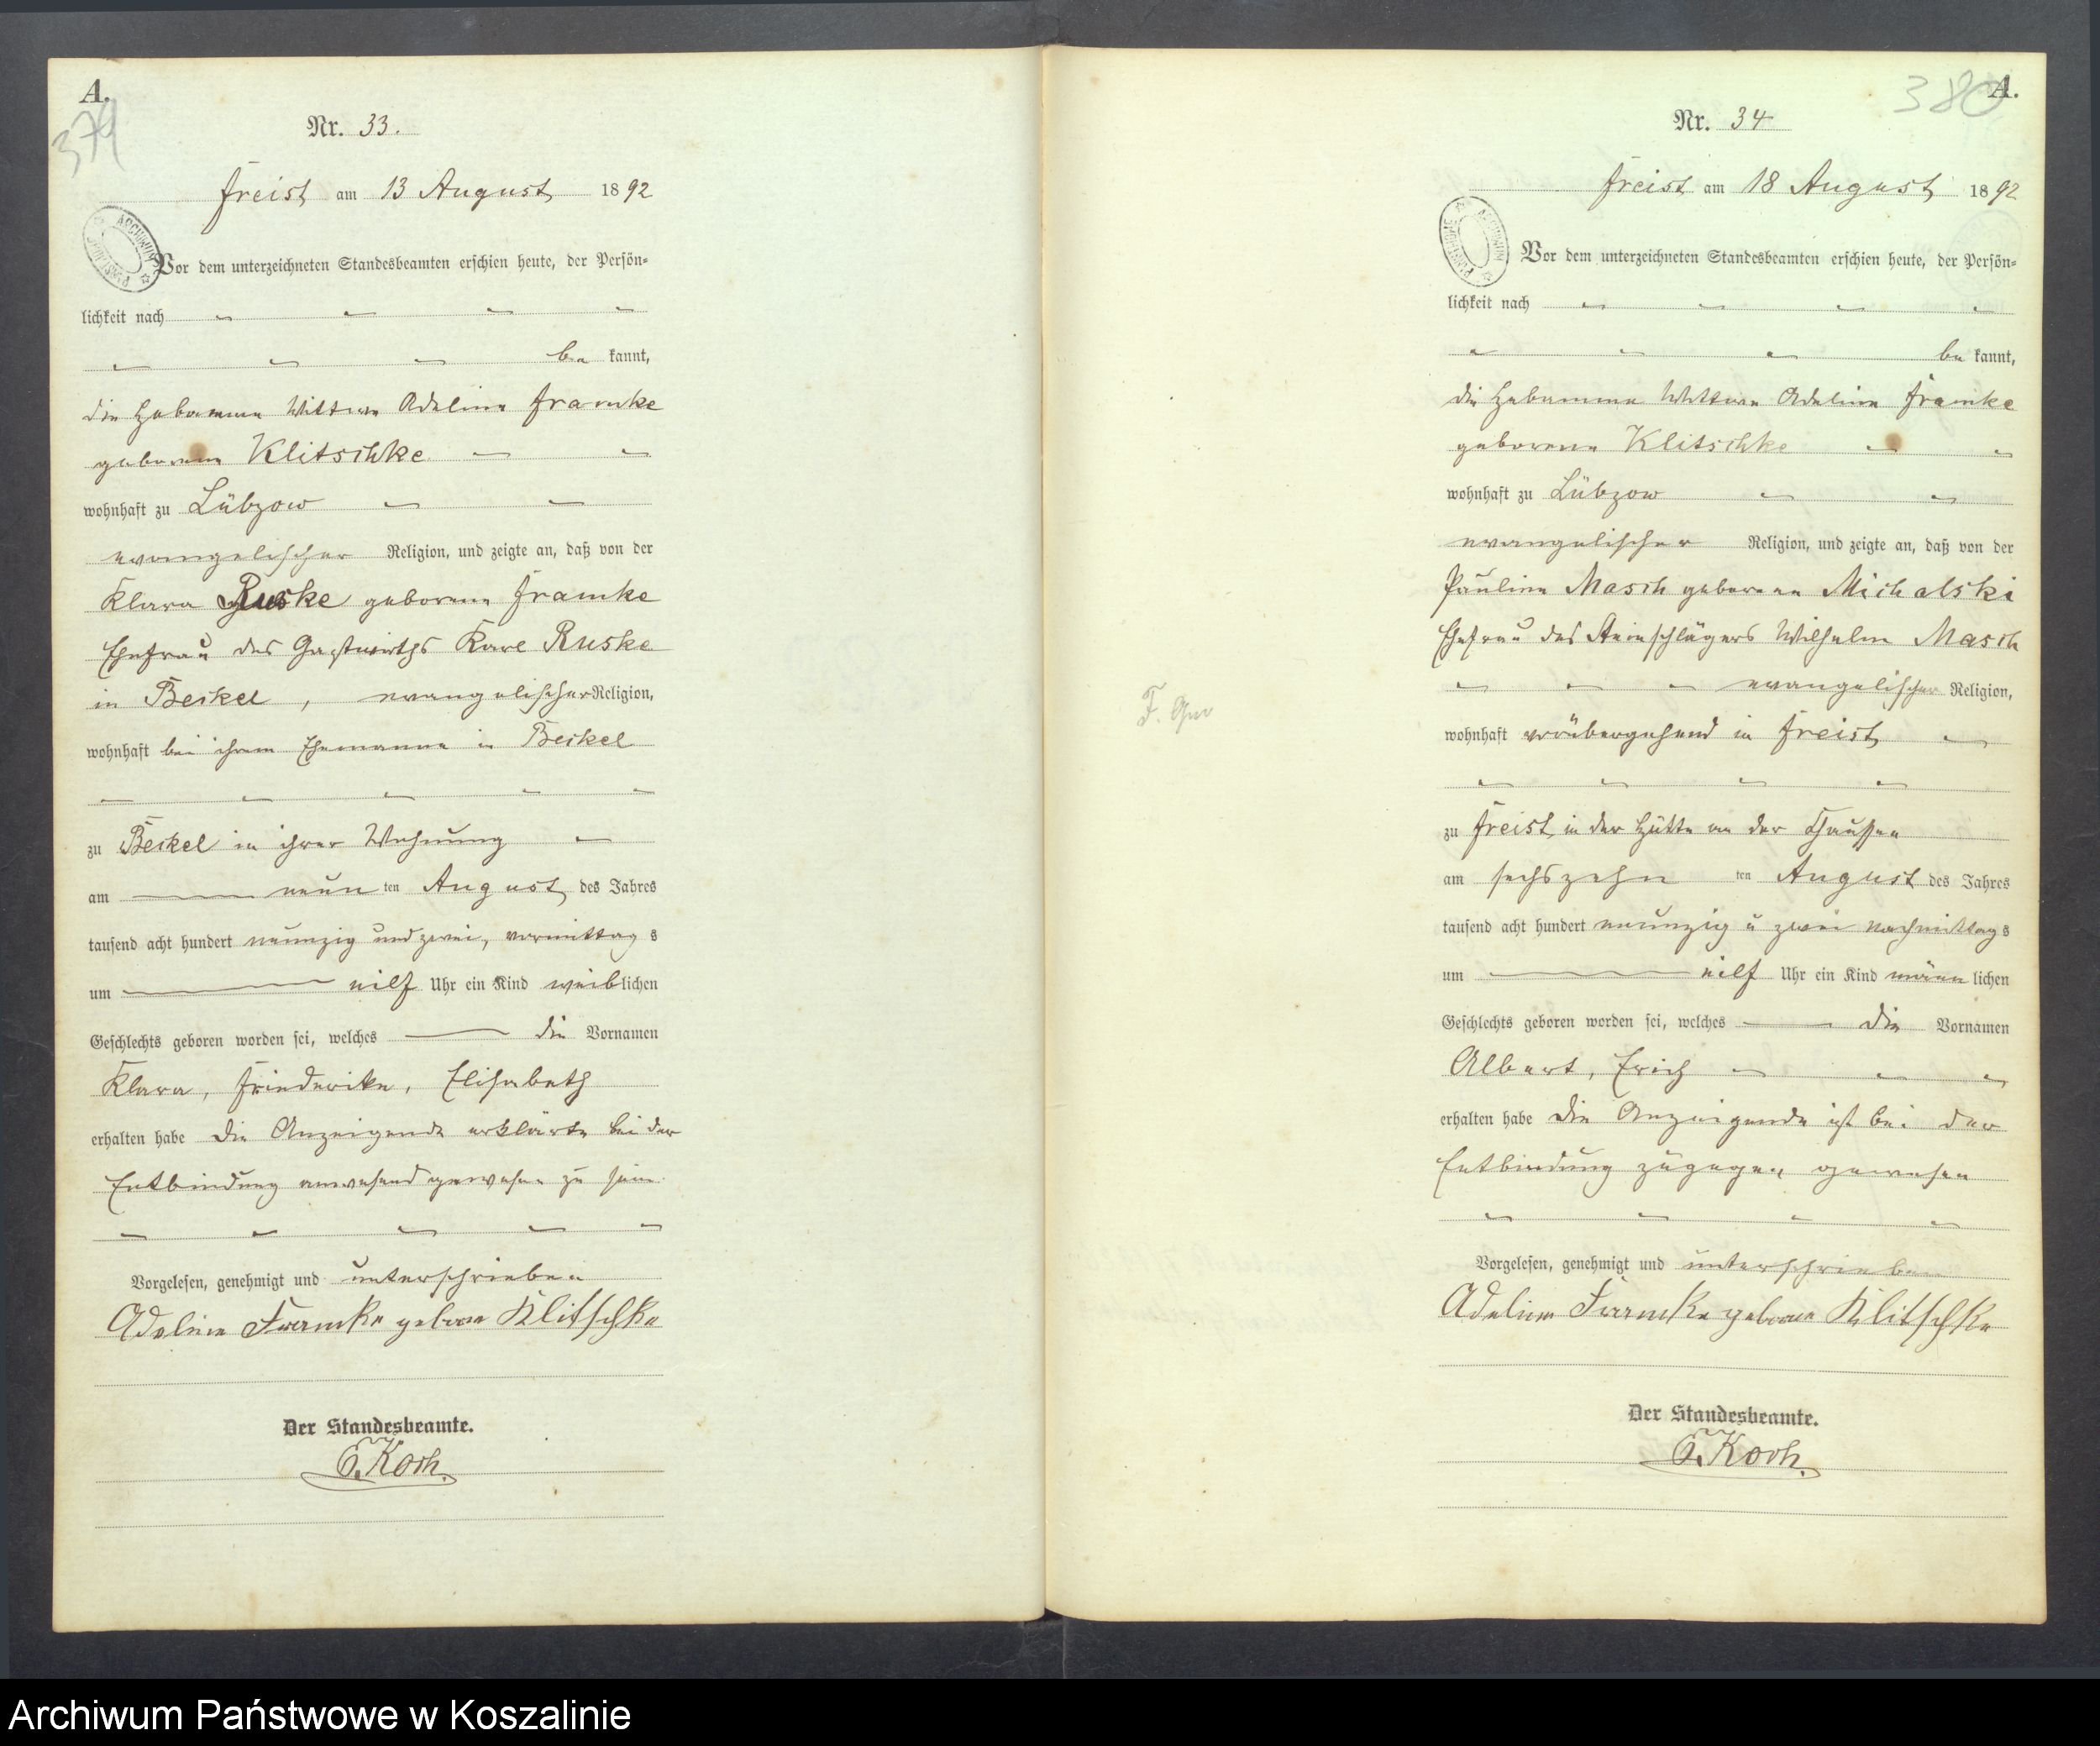 A.
379
Nr. 33.
Freist am 13 August 1892
Vor dem unterzeichneten Standesbeamten erschien heute, der Persön-
lichkeit nach
be kannt,
die Hebamme Wittwe Adeline Framke
geborene Klitschke
wohnhaft zu Lübzow
evangelischer Religion, und zeigte an, daß von der
Klara Ruske geborene Framke
Ehefrau des Gastwirths Karl Ruske
in Beckel, evangelischer Religion,
wohnhaft bei ihrem Ehemanne in Beckel
zu Beckel in ihrer Wohnung
am neun ten August des Jahres
tausend acht hundert neunzig und zwei, vormittag s
um eilf Uhr ein Kind weiblichen
Geschlechts geboren worden sei, welches die Vornamen
Klara, Friederike, Elisabeth
erhalten habe die Anzeigende erklärte bei der
Entbindung anwesend gewesen zu sein
Vorgelesen, genehmigt und unterschrieben
Adeline Framke geborne Klitschke
Der Standesbeamte.
Koch.
A.
380
Nr. 34
Freist am 18 August 1892
Vor dem unterzeichneten Standesbeamten erschien heute, der Persön-
lichkeit nach
be kannt,
die Hebamme Wittwe Adeline Framke
geborene Klitschke
wohnhaft zu Lübzow
evangelischer Religion, und zeigte an, daß von der
Pauline Masch geborene Michalski
Ehefrau des Steinschlägers Wilhelm Masch
evangelischer Religion,
wohnhaft vorübergehend in Freist
zu Freist in der Hütte an der Chaussee
am sechszehn ten August des Jahres
tausend acht hundert neunzig u zwei nachmittag s
um eilf Uhr ein Kind männ lichen
Geschlechts geboren worden sei, welches die Vornamen
Albert, Erich
erhalten habe die Anzeigende ist bei der
Entbindung zugegen gewesen
Vorgelesen, genehmigt und unterschrieben
Adeline Framke geborne Klitschke
Der Standesbeamte.
Koch.
Archiwum Państwowe w Koszalinie